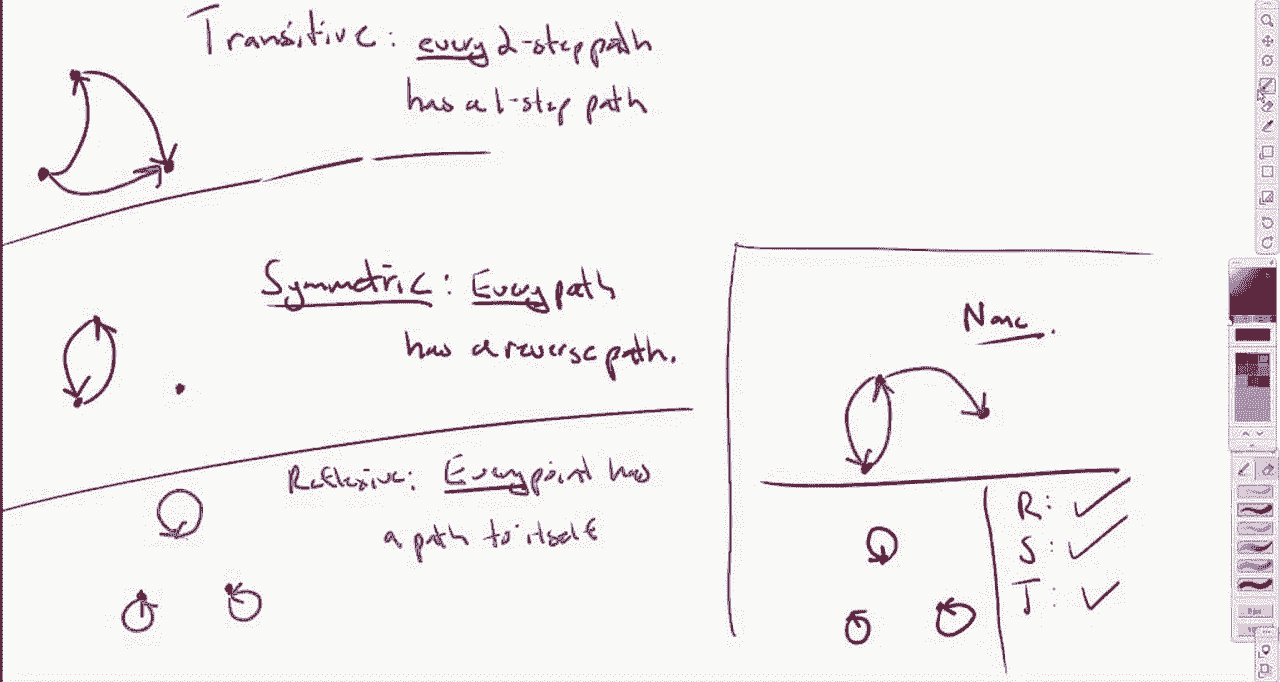 Transitive: every 2-step path
has a 1-step path
Symmetric: Every path
has a reverse path.
Reflexive: Every point has
a path to itself
None.
R: ✓
S: ✓
T: ✓